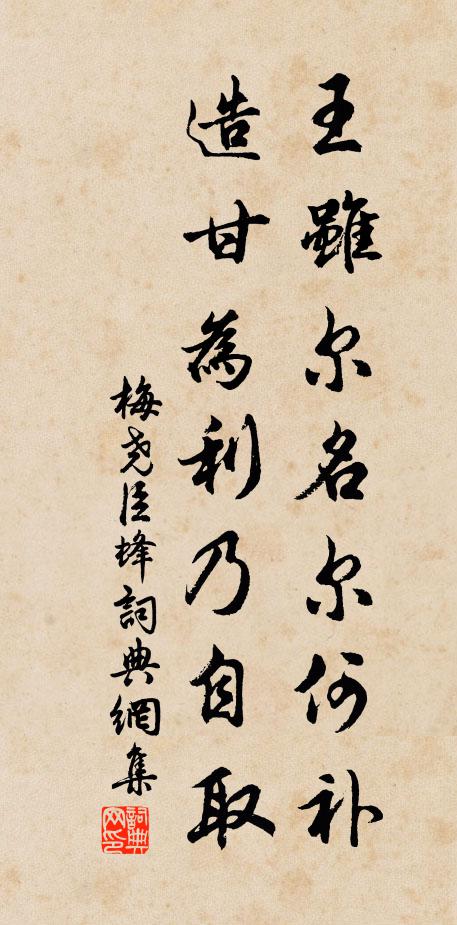 王雖尔名尔何补
造甘為利乃自取
梅尧臣蜂詞典網集
詞典网印